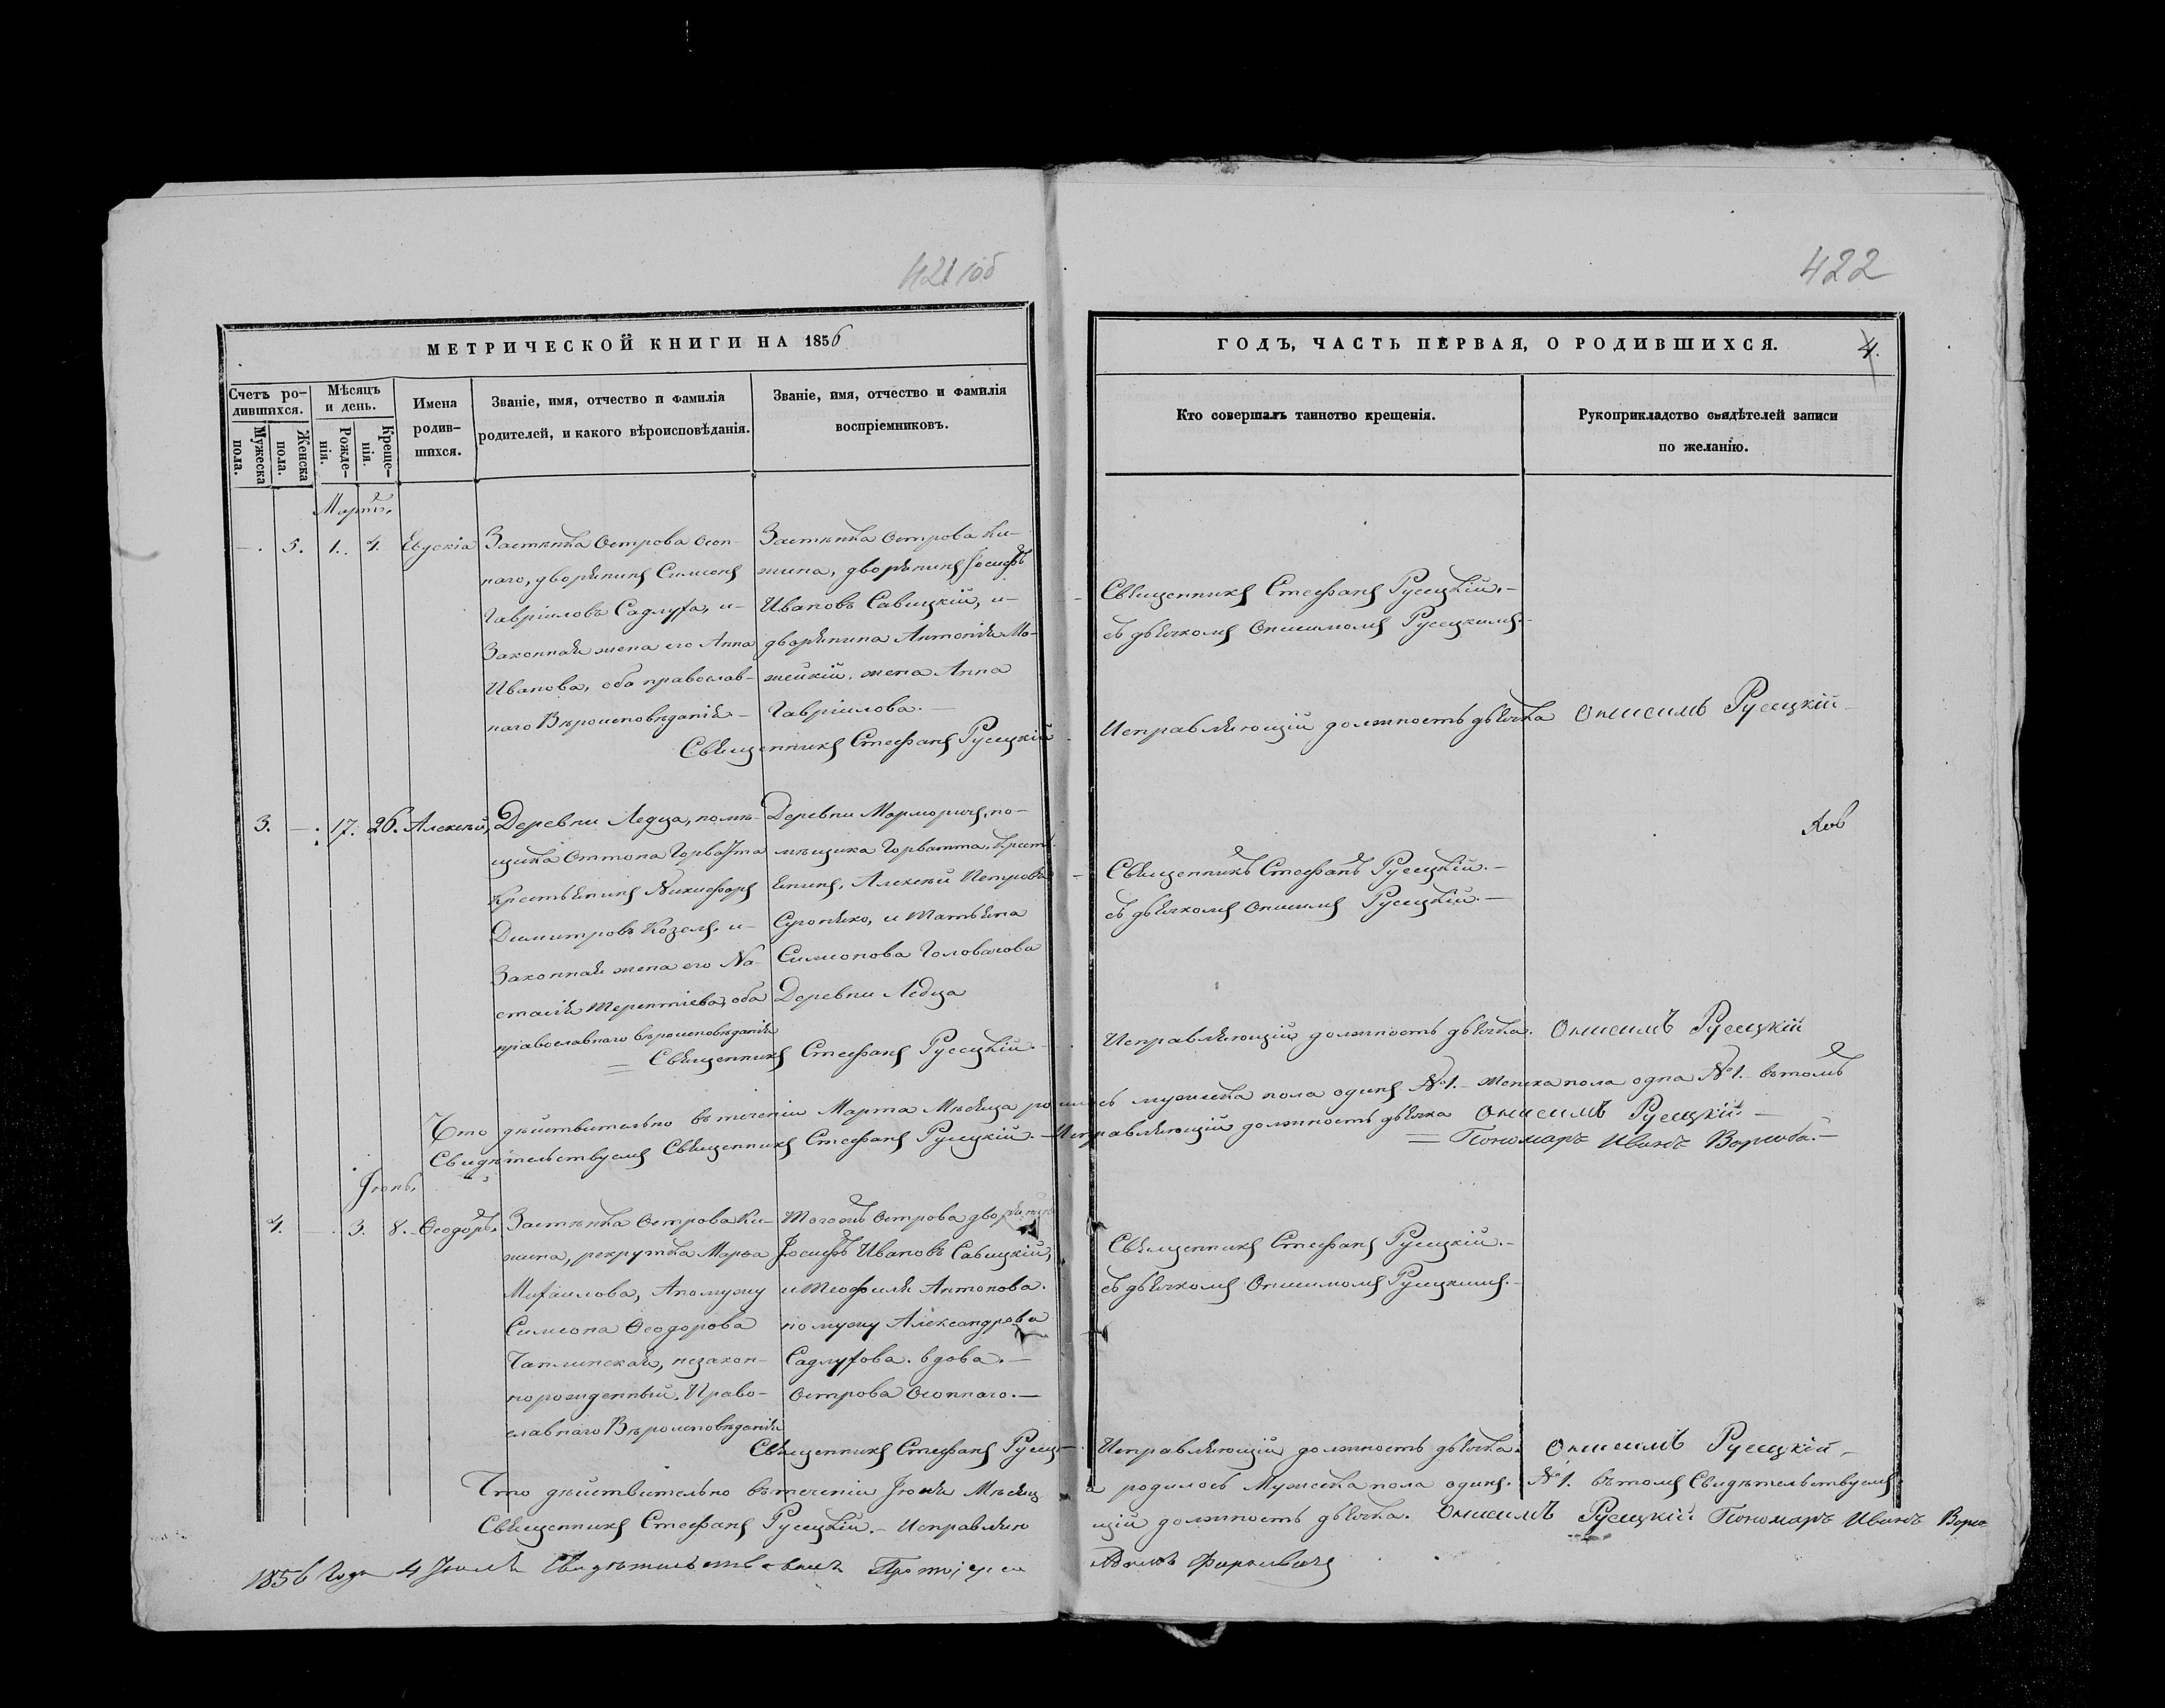 421 об
422
МЕТРИЧЕСКОЙ КНИГИ НА 1856
ГОДЪ, ЧАСТЬ ПЕРВАЯ, О РОДИВШИХСЯ.
4.
Счетъ ро-
дившихся.
Мужеска
пола.
Женска
пола.
Мѣсяцъ
и день.
Рожде-
нія.
Креще-
нія.
Имена
родив-
шихся.
Званіе, имя, отчество и фамилія
родителей, и какого вѣроисповѣданія.
Званіе, имя, отчество и фамилія
воспріемниковъ.
Кто совершалъ таинство крещенія.
Рукоприкладство свидѣтелей записи
по желанію.
Мартъ.
—. 5. 1. 4. Евдокіа
Застѣнка Острова Осов-
наго, дворянинъ Симеонъ
Гавріиловъ Садлуха, и
Законная жена его Анна
Иванова, оба православ-
наго Вѣроисповѣданія.—
Застѣнка Острова Ки-
жина, дворянинъ Іосифъ
Ивановъ Савицкій, и—
дворянина Антонія Мо-
жейкій, жена Анна
Гавріилова.—
Священникъ Стефанъ Русецкій
Священникъ Стефанъ Русецкій.—
съ дьячкомъ Онисимомъ Русецкимъ.—
Исправляющій должность дьячка Онисимъ Русецкій
3. —. 17. 26. Алексѣй,
Деревни Ледца, помѣ-
щика Оттона Горватта
Крестьянинъ Никифоръ
Димитровъ Козелъ, и—
Законная жена его На-
стасія Терентіева, оба
православнаго вѣроисповѣданія
Деревни Марморичъ, по-
мѣщика Горватта, Крестъ-
янинъ, Алексѣй Петровъ
Суропко, и Татьяна
Симеонова Головачова
Деревни Ледца
Священникъ Стефанъ Русецкій.
Священникъ Стефанъ Русецкій.—
съ дьячкомъ Онисимъ Русецкій.—
Исправляющій должность дьячка. Онисимъ Русецкій
Что дѣйствительно въ теченіи Марта Мѣсяца родилось мужеска пола одинъ №1.— женска пола одна №1.— въ томъ
Свидѣтельствуемъ Священникъ Стефанъ Русецкій.— Исправляющій должность дьячка Онисимъ Русецкій.—
= Пономарь Иванъ
Іюнь.
4. —. 3. 8. Ѳеодоръ.
Застѣнка Острова Ки-
жина, рекрутка Марѳа
Михаилова, А по мужу
Симеона Ѳеодорова
Чаплинская, незакон-
норожденный. Право-
славнаго Вѣроисповѣданія
Тогожъ Острова дворянинъ
Іосифъ Ивановъ Савицкій,
и Теофиля Антонова.
по мужу Александрова
Садлухова. вдова.—
Острова Осовнаго.—
Священникъ Стефанъ Русец—
Священникъ Стефанъ Русецкій.—
съ дьячкомъ Онисимомъ Русецкимъ.—
Исправляющій должность дьячка. Онисимъ Русецкій
Что дѣйствительно въ теченіи Іюня Мѣсяца родилось Мужеска пола одинъ. №1. въ томъ Свидѣтельствуемъ
Священникъ Стефанъ Русецкій.— Исправляющій должность дьячка. Онисимъ Русецкій Пономарь Иванъ
1856 Года 4 Іюля Свидѣтельствовалъ Протоіерей